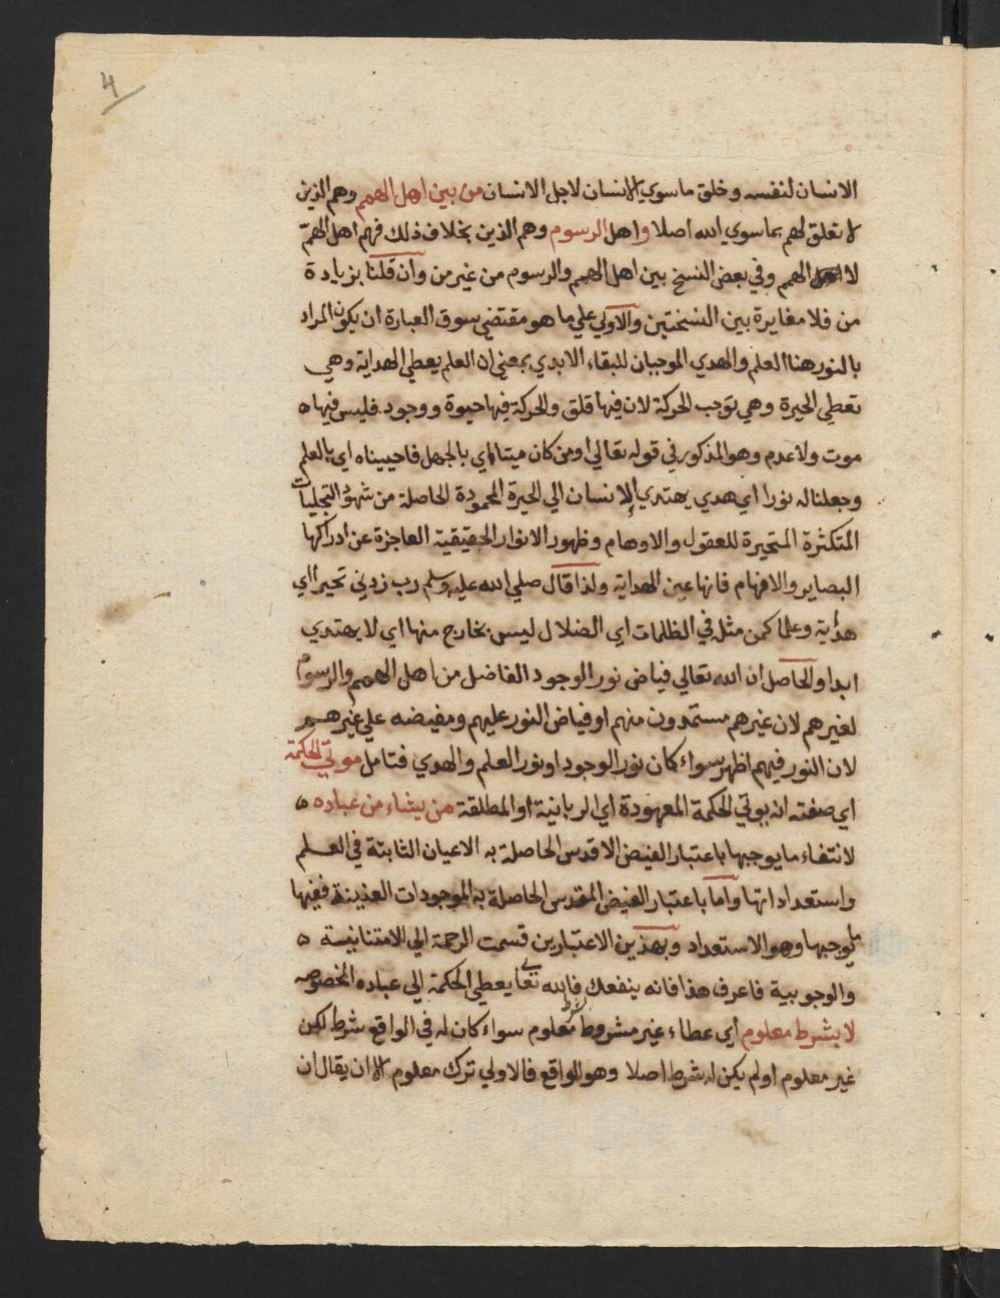 4
الانسان لنفسه وخلق ماسوي الانسان لاجل الانسان من بين اهل الهمم وهم الذين
لا تعلق لهم بماسوي الله اصلا واهل الرسوم وهم الذين بخلاف ذلك فهم اهل الهمّ
لا اهل الهمم وفي بعض النسخ بين اهل الهمم والرسوم من غير من وان قلنا بزيادة
من فلا مغايرة بين النسختين والاولي علي ما هو مقتضي سوق العبارة ان يكون المراد
بالنور هنا العلم والهدي الموجبان للبقاء الابدي بمعني ان العلم يعطي الهداية وهي
تعطي الحيرة وهي توجب الحركة لان فيها قلق والحركة فيها حيوة ووجود فليس فيها ه
موت ولا عدم وهو المذكور في قوله تعالي اومن كان ميتا اي بالجهل فاحييناه اي بالعلم
وجعلنا له نورا اي هدي يهتدي الانسان الي الحيرة المحمودة الحاصلة من شهود التجليات
المتكثرة المتحيرة للعقول والاوهام وظهور الانوار الحقيقية العاجزة عن ادراكها
البصاير والافهام فانها عين الهداية ولذا قال صلي الله عليه وسلم رب زدني تحيرا اي
هداية وعلما كمن مثله في الظلمات اي الضلال ليس بخارج منها اي لا يهتدي
ابدا والحاصل ان الله تعالي فياض نور الوجود الفاضل من اهل الهمم والرسوم
لغيرهم لان غيرهم مستمدون منهم او فياض النور عليهم ومفيضه علي غيرهم
لان النور فيهم اظهر سواء كان نور الوجود او نور العلم والهدي فتامل موتي الحكمة
اي صفته انه يوتي الحكمة المعهودة اي الربانية او المطلقة من يشاء من عباده ه
لانتفاء ما يوجبها باعتبار الفيض الاقدس الحاصلة به الاعيان الثابتة في العلم
واستعداداتها واما باعتبار الفيض المقدس الحاصلة به الموجودات العينية ففيها
ما يوجبها وهو الاستعداد وبهذين الاعتبارين قسمت الرحمة الي الامتنانية ه
والوجوبية فاعرف هذا فانه ينفعك فالله تعالي يعطي الحكمة الي عباده المخصوصه
لا بشرط معلوم اي عطاء غير مشروط بشرط معلوم سواء كان له في الواقع شرط لكن
غير معلوم او لم يكن له شرط اصلا وهو الواقع فالاولي ترك معلوم الا ان يقال ان